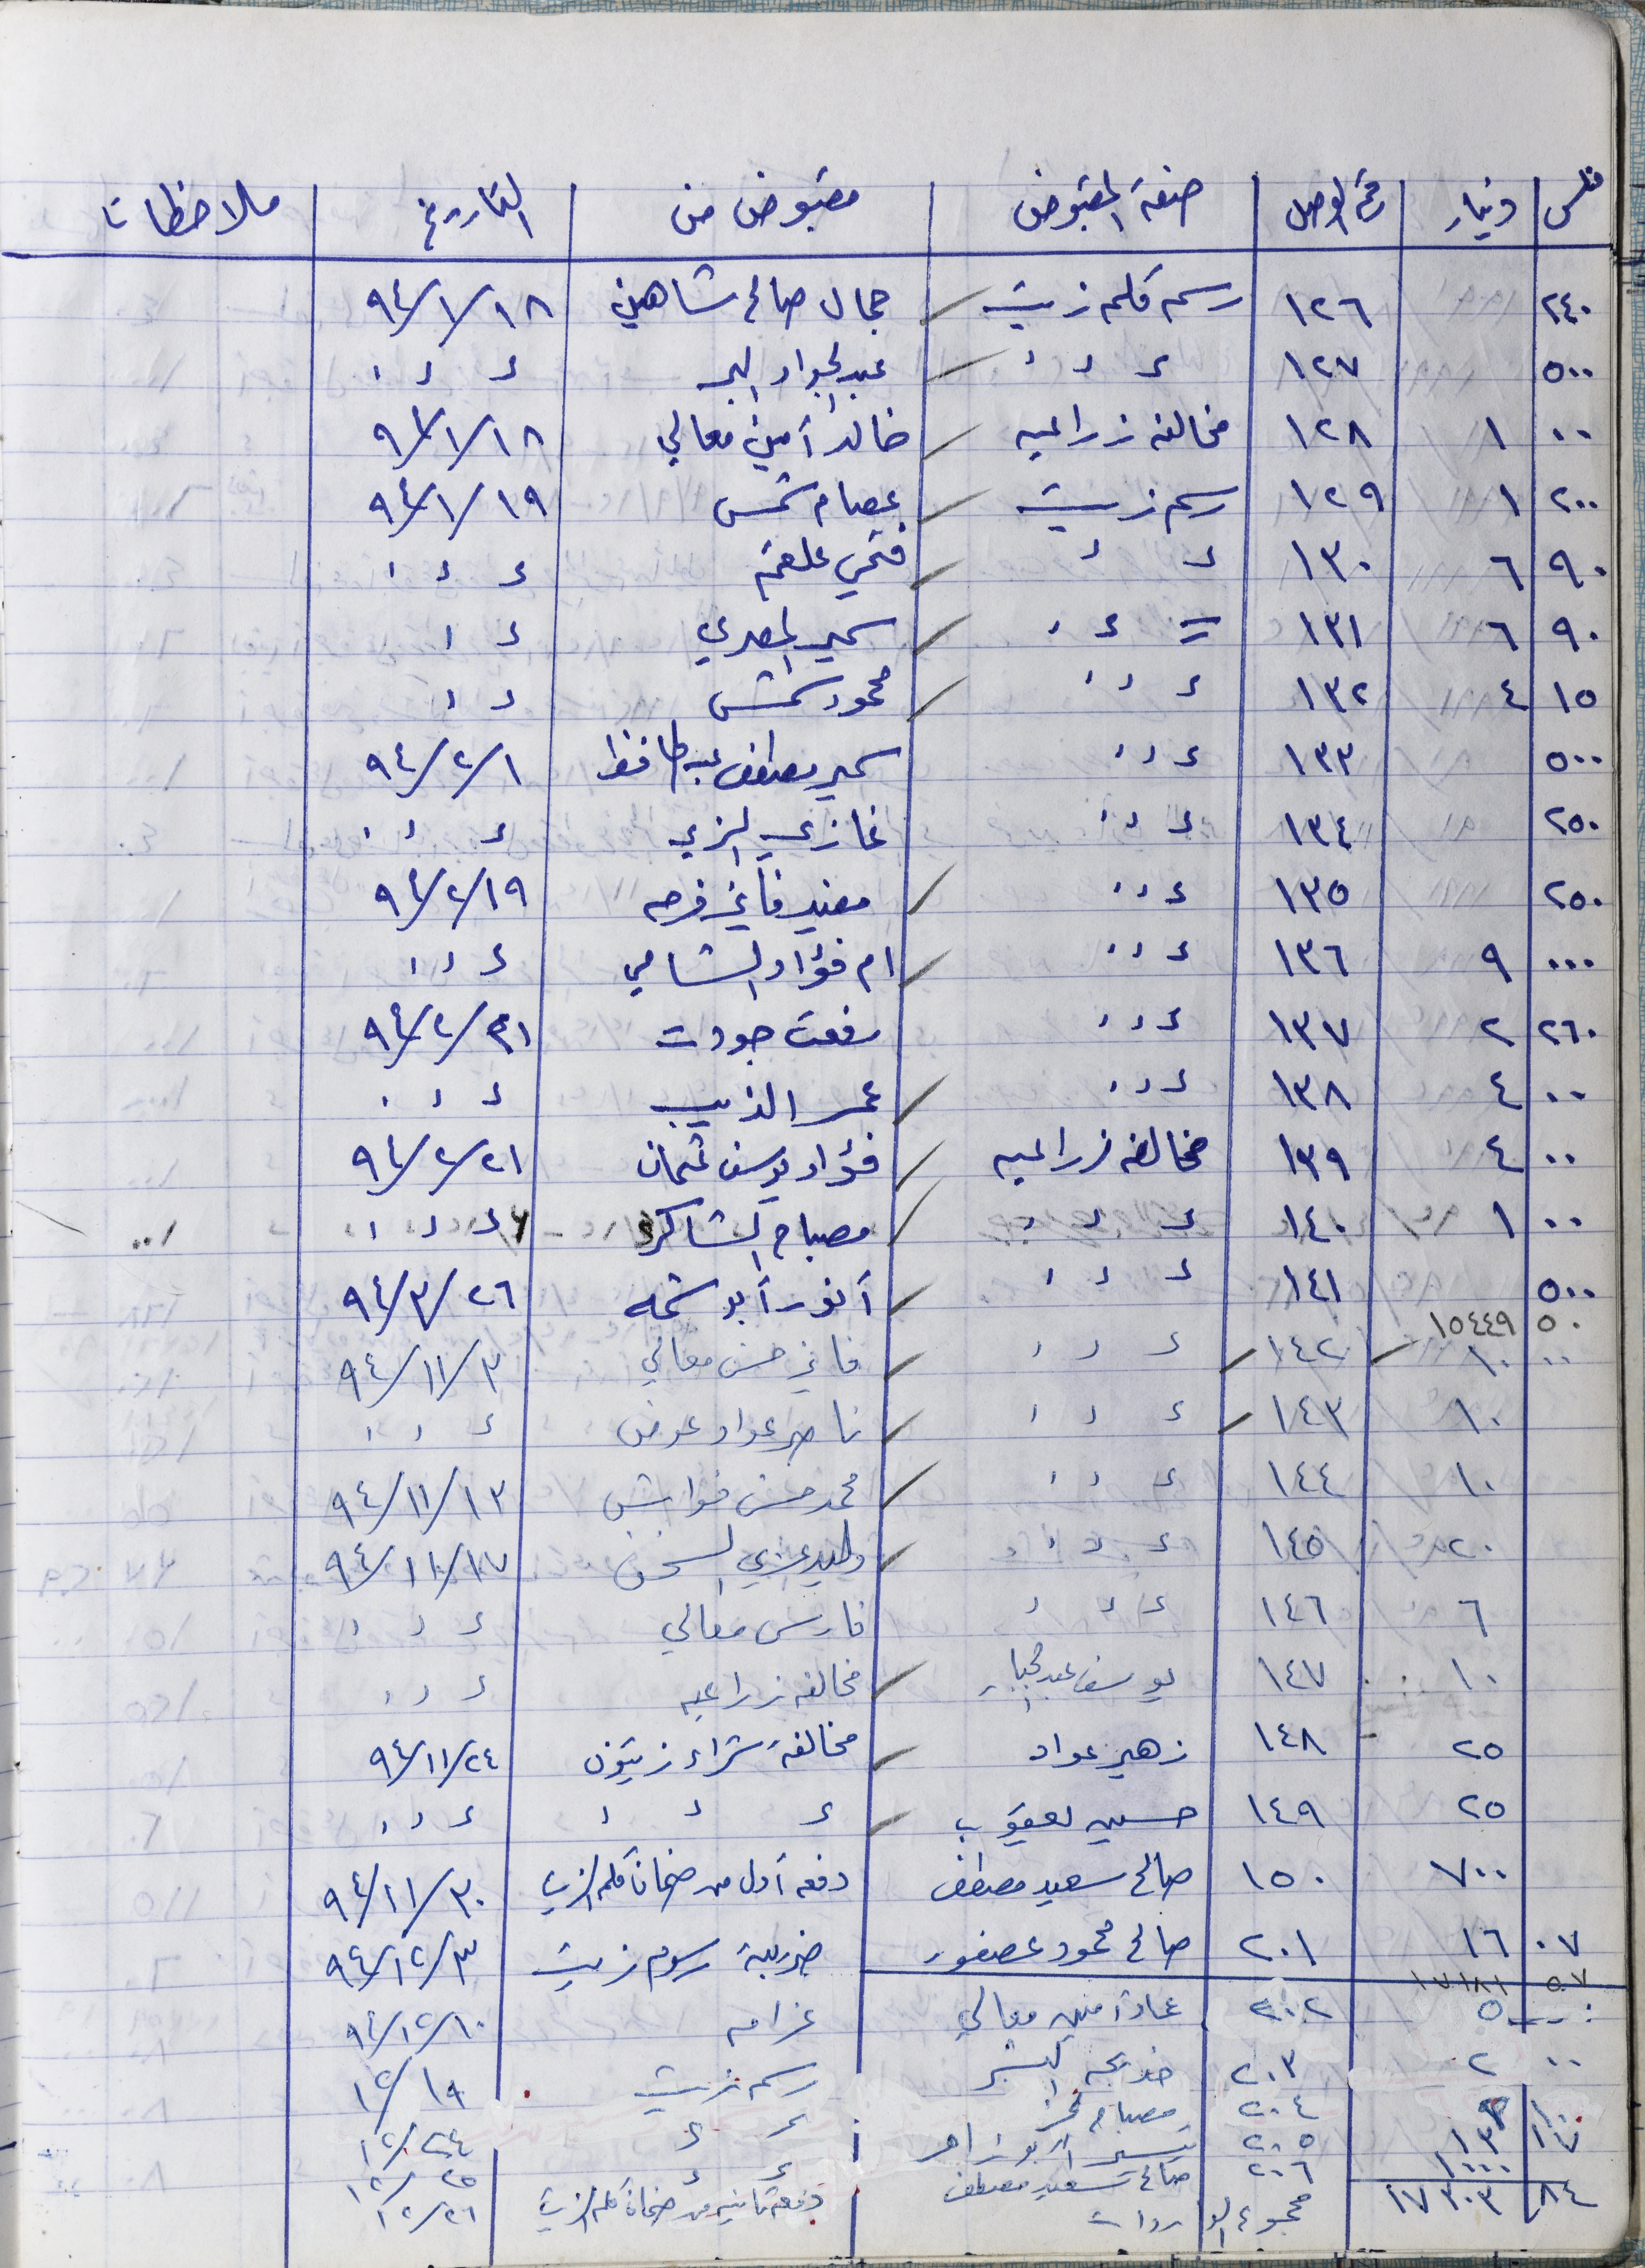 فلس دينار رقم الوصل صفة المقبوض مقبوض من التاريخ ملاحظات
٢٤٠ ١٢٦ رسم كلم زيت جمال صالح شاهين ٩٤/١/١٨
٥٠٠ ١٢٧ ء ء ء عبد الجواد ء ء ء
٠٠ ١ ١٢٨ مخالفه زراعيه خالد أمين معالي ٩٤/١/١٨
٢٠٠ ١ ١٢٩ رسم زيت عصام شمس ٩٤/١/١٩
٩٠ ٦ ١٣٠ ء ء فتحي علقم ء ء ء
٩٠ ٦ ١٣١ = ء ء سمير المصري ء ء
١٥ ٤ ١٣٢ ء ء ء محمود شمس ء ء
٥٠٠ ١٣٣ ء ء ء سمير مصطفى عبد الحافظ ٩٤/٢/١
٢٥٠ ١٣٤ ء ء ء غازي الزي ء ء ء
٢٥٠ ١٣٥ ء ء ء مفيد فايز فرحه ٩٤/٢/١٩
٠٠٠ ٩ ١٣٦ ء ء ء ام فؤاد الشامي ء ء ء
٢٦٠ ٢ ١٣٧ ء ء ء رفعت جودت ٩٤/٢/٢١
٠٠ ٤ ١٣٨ ء ء ء عمر الذيب ء ء ء
٠٠ ٤ ١٣٩ مخالفه زراعيه فؤاد يوسف عثمان ٩٤/٢/٢١
٠٠ ١ ١٤٠ ء ء ء مصباح الشاكر ء ء ء
٥٠٠ ١٤١ ء ء ء أنور أبو شمله ٩٤/٣/٢٦
٥٠ ١٥٤٤٩
٠٠ ١٠ ١٤٢ ء ء ء فايز حسن معالي ٩٤/١١/٣
١٠ ١٤٣ ء ء ء ناصر عواد عوض ء ء ء
١٠ ١٤٤ ء ء ء محمد حسن ٩٤/١١/١٣
٢٠ ١٤٥ ء ء ء وليد ٩٤/١١/١٧
٦ ١٤٦ ء ء ء فارس معالي ء ء ء
١٠ ١٤٧ يوسف عبد الجبار مخالفه زراعيه ء ء ء
٢٥ ١٤٨ زهير عواد مخالفة شراء زيتون ٩٤/١١/٢٤
٢٥ ١٤٩ حسين يعقوب ء ء ء ء ء ء
٧٠٠ ١٥٠ صالح سعيد مصطفى دفعه أولى من ضمان كلم الزيت ٩٤/١١/٣٠
٠٧ ١٦ ٢٠١ صالح محمود عصفور ضريبة رسوم زيت ٩٤/١٢/٣
٥٧ ١٧١٨١
٥ ٢٠٢ عماد أمين معالي غرامه ٩٤/١٢/١٠
٠٠ ٢ ٢٠٣ خديجه رسم زيت ١٢/١٩
٢٠٤ مصباح ء ء ١٢/٢٤
١٣ ٢٠٥ أبو زاهر ء ء ١٢/٢٥
١٠٠٠ ٢٠٦ صالح سعيد مصطفى دفعه ثانيه من ضمان كلم الزيت ١٢/٢٦
٨٤ ١٧٢٠٣ مجموع الواردات